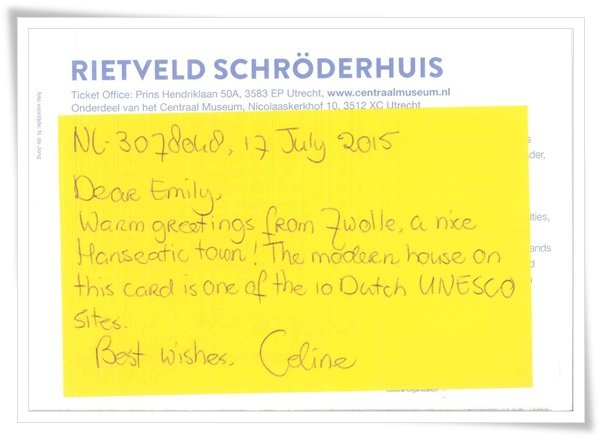 RIETVELD SCHRÖDERHUIS
Ticket Office: Prins Hendriklaan 50A, 3583 EP Utrecht, www.centraalmuseum.nl
Onderdeel van het Centraal Museum, Nicolaaskerkhof 10, 3512 XC Utrecht
NL-3078048, 17 July 2015
Dear Emily,
Warm greetings from Zwolle, a nice
Hanseatic town! The modern house on
this card is one of the 10 Dutch UNESCO
sites.
Best wishes, Celine